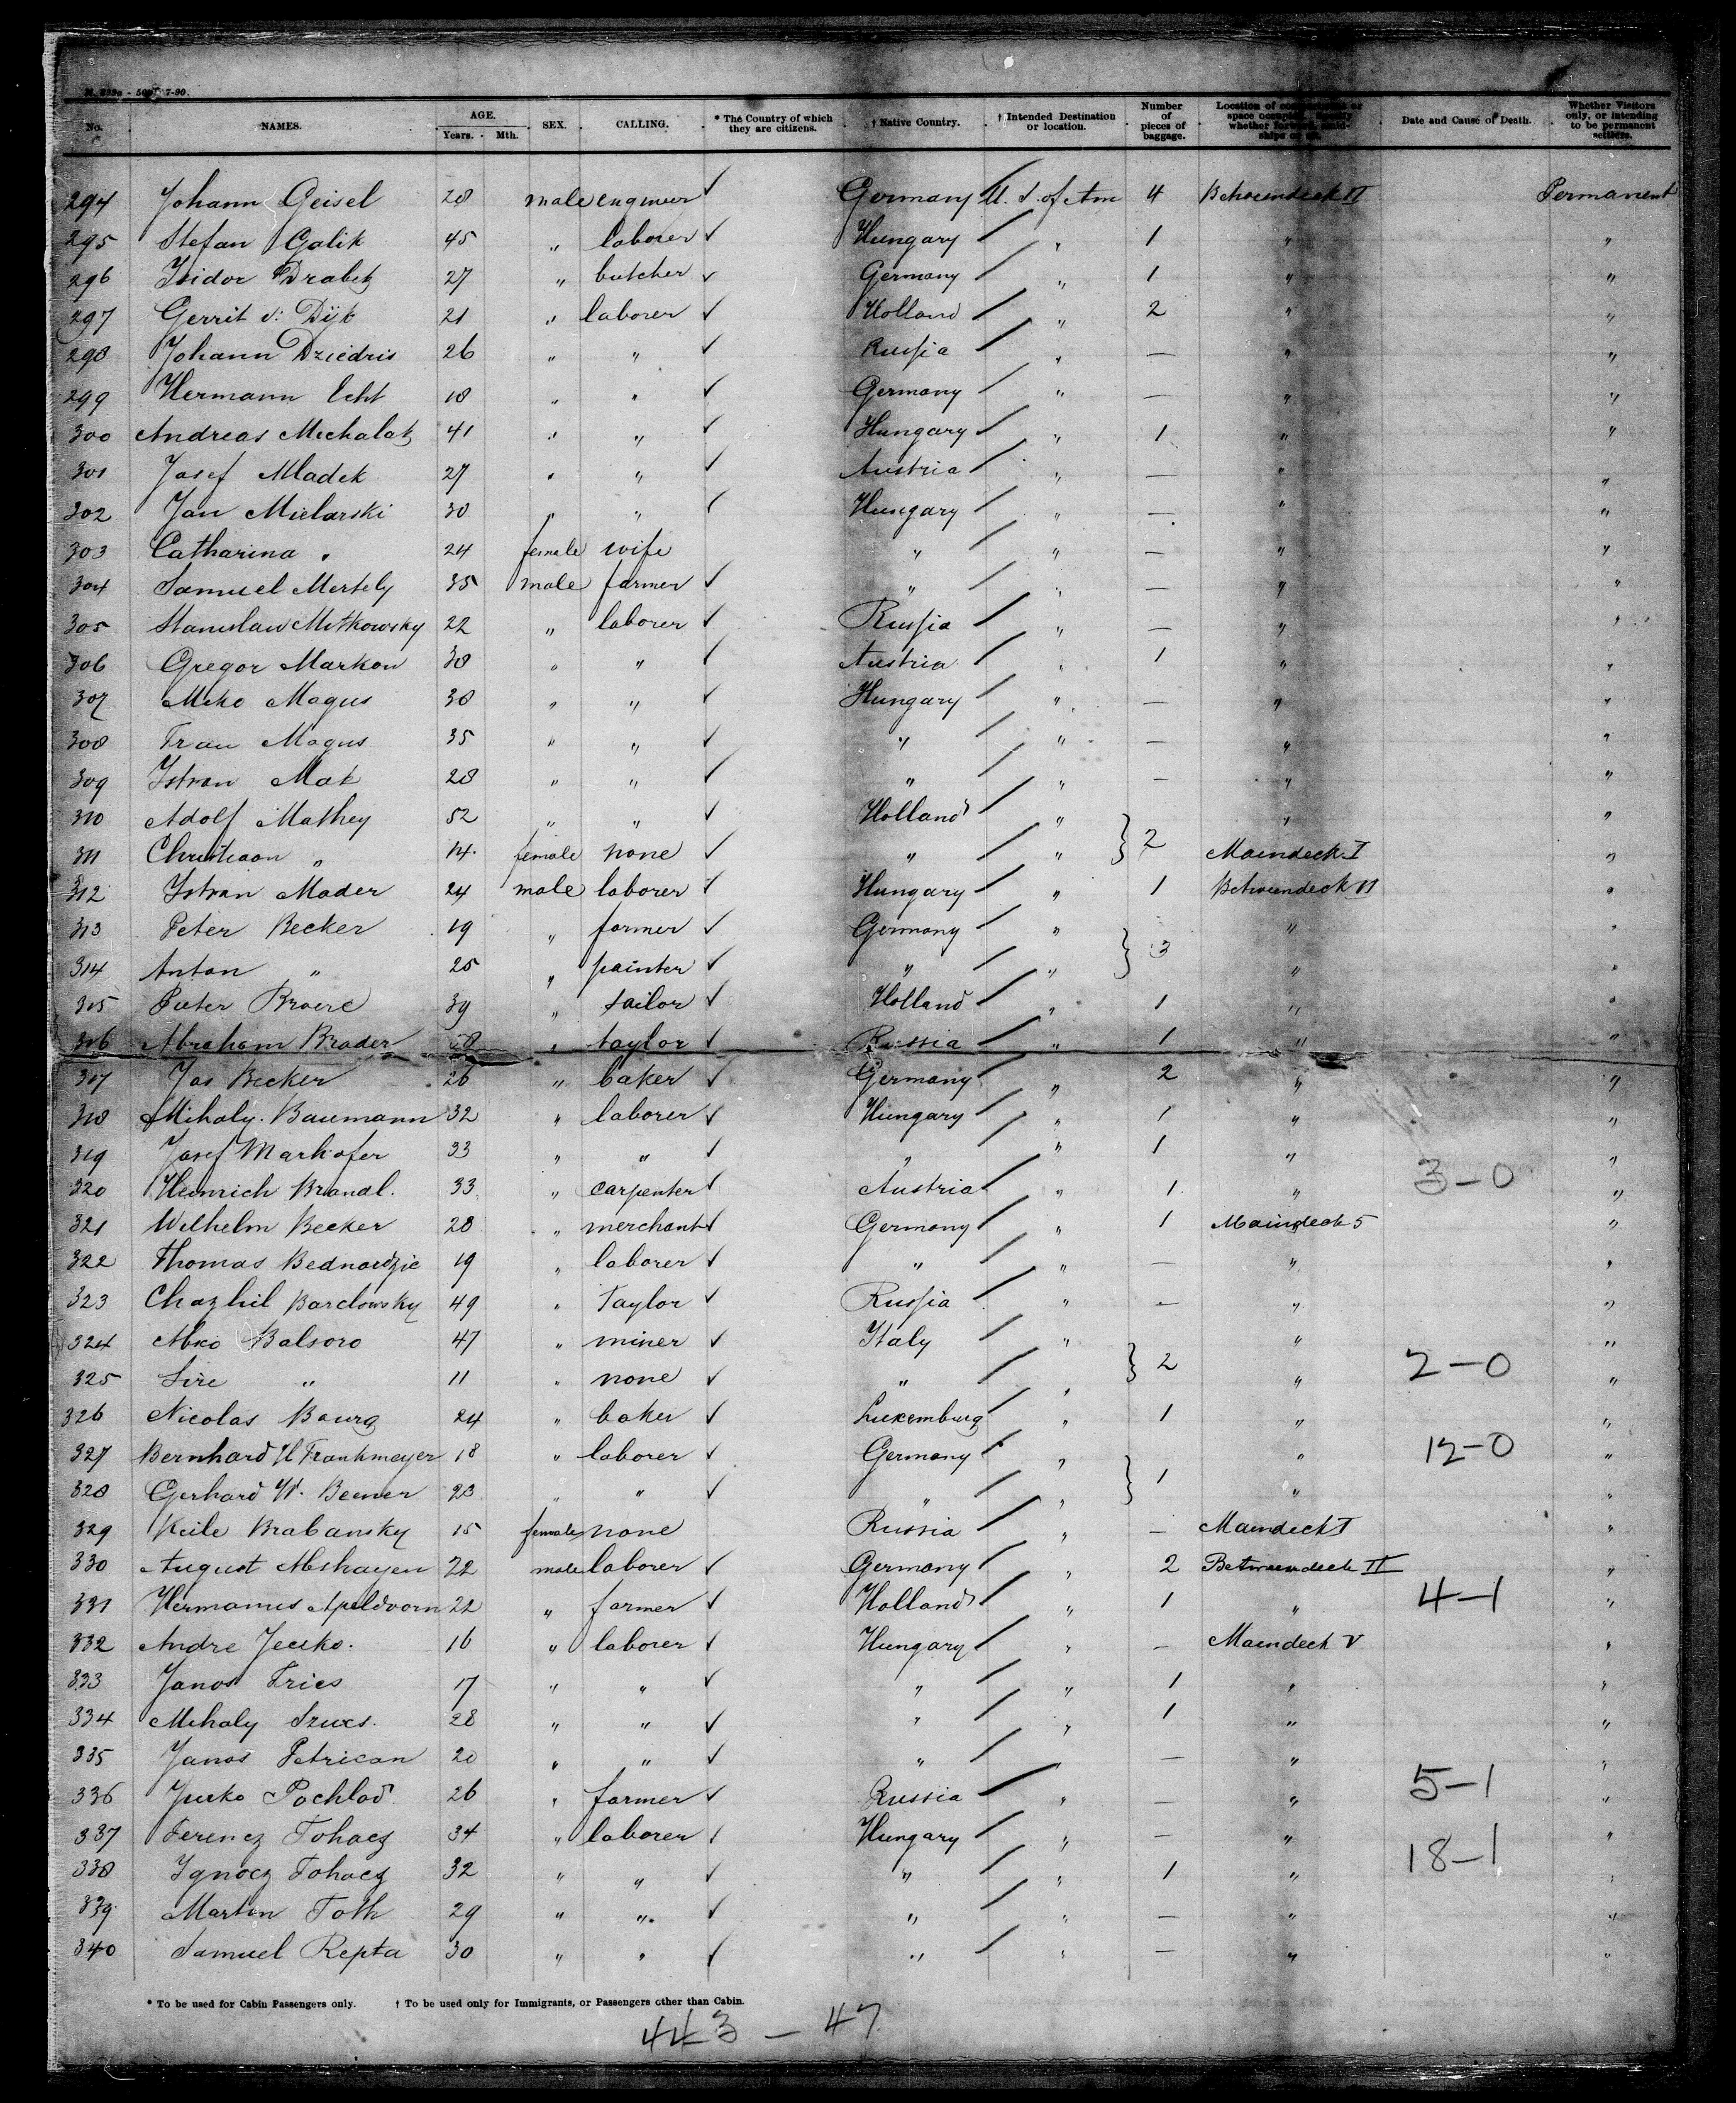 No. NAMES. AGE. Years. Mth. SEX. CALLING. * The Country of which they are citizens. † Native Country. † Intended Destination or location. Number of pieces of baggage. Location of compartment or space occupied. whether forward, ships or Date and Cause of Death. Whether Visitors only, or intending to be permanent settlers.
294 Johann Geisel 28 male engineer ✓ Germany U. S. of Am 4 Betweendeck II Permanent
295 Stefan Galik 45 " laborer ✓ Hungary " 1 " "
296 Isidor Drabek 27 " butcher ✓ Germany " 1 " "
297 Gerrit v: Dijk 21 " laborer ✓ Holland " 2 " "
298 Johann Dziedris 26 " " ✓ Russia " — " "
299 Hermann Echt 18 " " ✓ Germany " — " "
300 Andreas Michalak 41 " " ✓ Hungary " 1 " "
301 Josef Mladek 27 " " ✓ Austria " — " "
302 Jan Mielarski 30 " " ✓ Hungary " — " "
303 Catharina " 24 female wife " " — " "
304 Samuel Mertely 35 male farmer ✓ " " — " "
305 Stanislaw Mitkowsky 22 " laborer ✓ Russia " — " "
306 Gregor Markow 38 " " ✓ Austria " 1 " "
307 Miko Magus 38 " " ✓ Hungary " — " "
308 Frau Magus 35 " " ✓ " " — " "
309 Istvan Mak 28 " " ✓ " " — " "
310 Adolf Mathey 52 " " ✓ Holland " " "
311 Christiaan " 14 female none ✓ " " } 2 Maindeck I "
312 Istvan Mader 24 male laborer ✓ Hungary " 1 Betweendeck II "
313 Peter Becker 19 " farmer ✓ Germany " " "
314 Anton " 25 " painter ✓ " " } 3 " "
315 Pieter Broere 39 " sailor ✓ Holland " 1 " "
316 Abraham Brader " taylor ✓ Russia " 1 " "
317 Jos Becker 26 " baker ✓ Germany " 2 " "
318 Mihaly Baumann 32 " laborer ✓ Hungary " 1 " "
319 Josef Markofer 33 " " ✓ " " 1 " "
320 Heinrich Brandl. 33 " carpenter ✓ Austria " 1 " 3–0 "
321 Wilhelm Becker 28 " merchant ✓ Germany " 1 Maindeck 5 "
322 Thomas Bednardzic 19 " laborer ✓ " " — " "
323 Barclowsky 49 " Taylor ✓ Russia " — " "
324 Balsoro 47 " miner ✓ Italy " " "
325 Sire " 11 " none ✓ " " } 2 " 2–0 "
326 Nicolas Bourg 24 " baker ✓ Luxemburg " 1 " "
327 Bernhard H Frankmeyer 18 " laborer ✓ Germany " " 12–0 "
328 Gerhard W. Beener 23 " " ✓ " " } 1 " "
329 Keile Brabansky 15 female none Russia " — Maindeck I "
330 August Abshagen 22 male laborer ✓ Germany " 2 Betweendeck II "
331 Hermanus Apeldoorn 22 " farmer ✓ Holland " 1 " 4–1 "
332 Andre Jecsko. 16 " laborer ✓ Hungary " — Maindeck V "
333 Janos Fries 17 " " ✓ " " 1 " "
334 Mihaly Szucs. 28 " " ✓ " " 1 " "
335 Janos Petrican 20 " " ✓ " " — " "
336 Jurko Pochlod 26 " farmer ✓ Russia " — " 5–1 "
337 Ferencz Tohacz 34 " laborer ✓ Hungary " — " "
338 Ignocz Tohacz 32 " " ✓ " " 1 " 18–1 "
339 Marton Toth 29 " " ✓ " " — " "
340 Samuel Repta 30 " " ✓ " " — " "
* To be used for Cabin Passengers only. † To be used only for Immigrants, or Passengers other than Cabin.
443 – 47